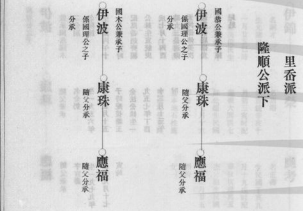 里乔派
隆順公派下
國恭公兼承子
伊波
係國璽公之子
分承
康珠
隨父分承
應福
隨父分承
國木公兼承子
伊波
係國璽公之子
分承
康珠
隨父分承
應福
隨父分承